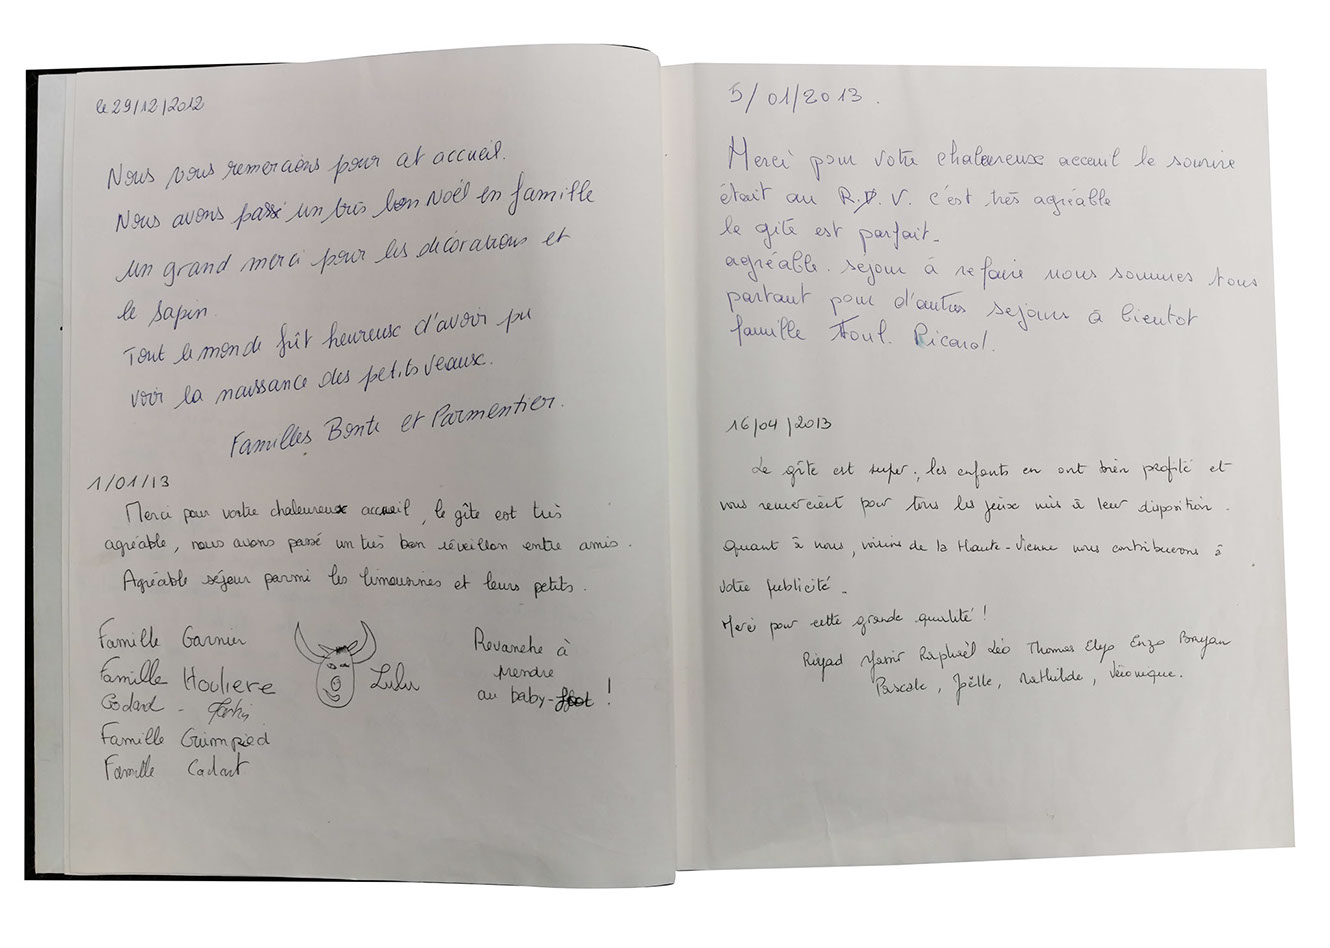 le 29/12/2012
Nous vous remercions pour cet accueil.
Nous avons passé un très bon Noël en famille
un grand merci pour les décorations et
le sapin.
Tout le monde fût heureux d'avoir pu
voir la naissance des petits veaux.
Familles Bonte et Parmentier.
1/01/13
Merci pour votre chaleureux accueil, le gîte est très
agréable, nous avons passé un très bon réveillon entre amis.
Agréable séjour parmi les limousines et leurs petits.
Famille Garnier
Famille Houliere
Godard -
Famille Guimpied
Famille Cadart
Lulu
Revanche à
prendre
au baby-foot !
5/01/2013.
Merci pour votre chaleureux acceuil le sourire
était au R.D.V. c'est très agréable
le gîte est parfait.
agréable. sejour à refaire nous sommes tous
partant pour d'autres sejours à bientot
famille Ricard.
16/04/2013
Le gîte est super, les enfants en ont bien profité et
vous remercient pour tous les jeux mis à leur disposition.
Quant à nous, voisins de la Haute-Vienne nous contribuerons à
votre publicité.
Merci pour cette grande qualité !
Riyad Yassir Raphaël Léo Thomas Enzo
Pascale, Joëlle, Mathilde, Véronique.